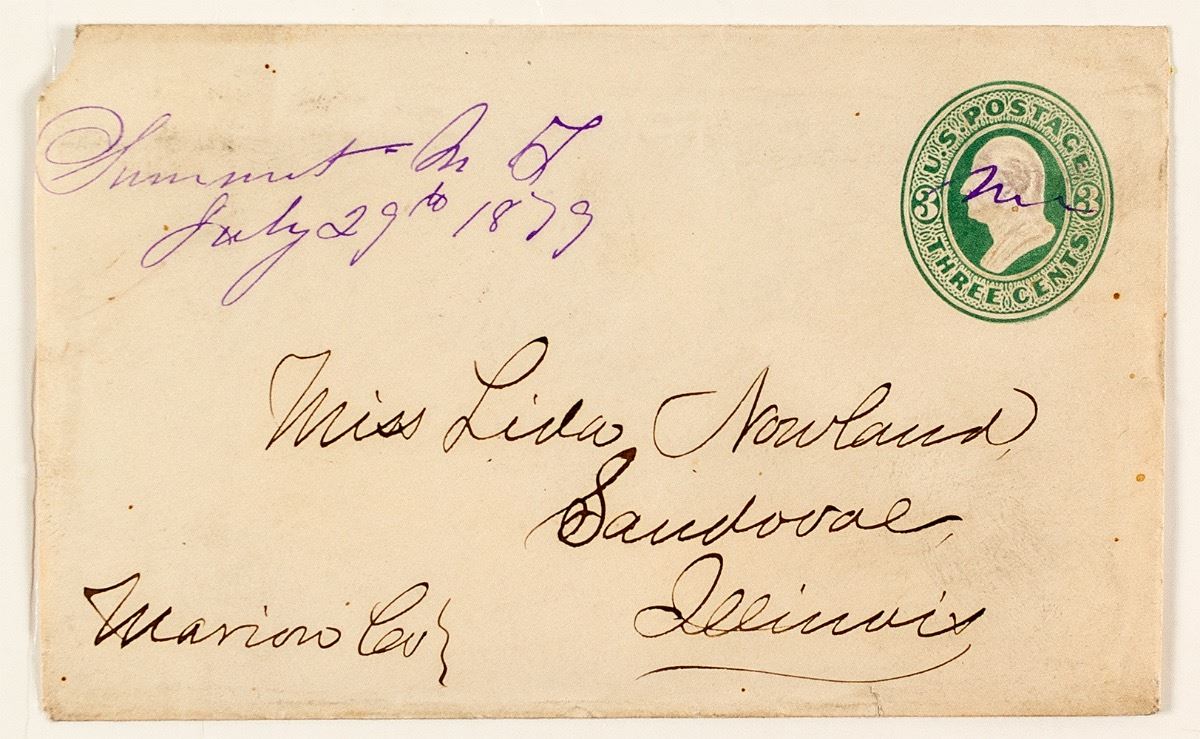 Summit M T
July 29th 1879
U.S. POSTAGE
3 3
THREE CENTS
Miss Lida Nowland,
Sandoval,
Illinois
Marion Co